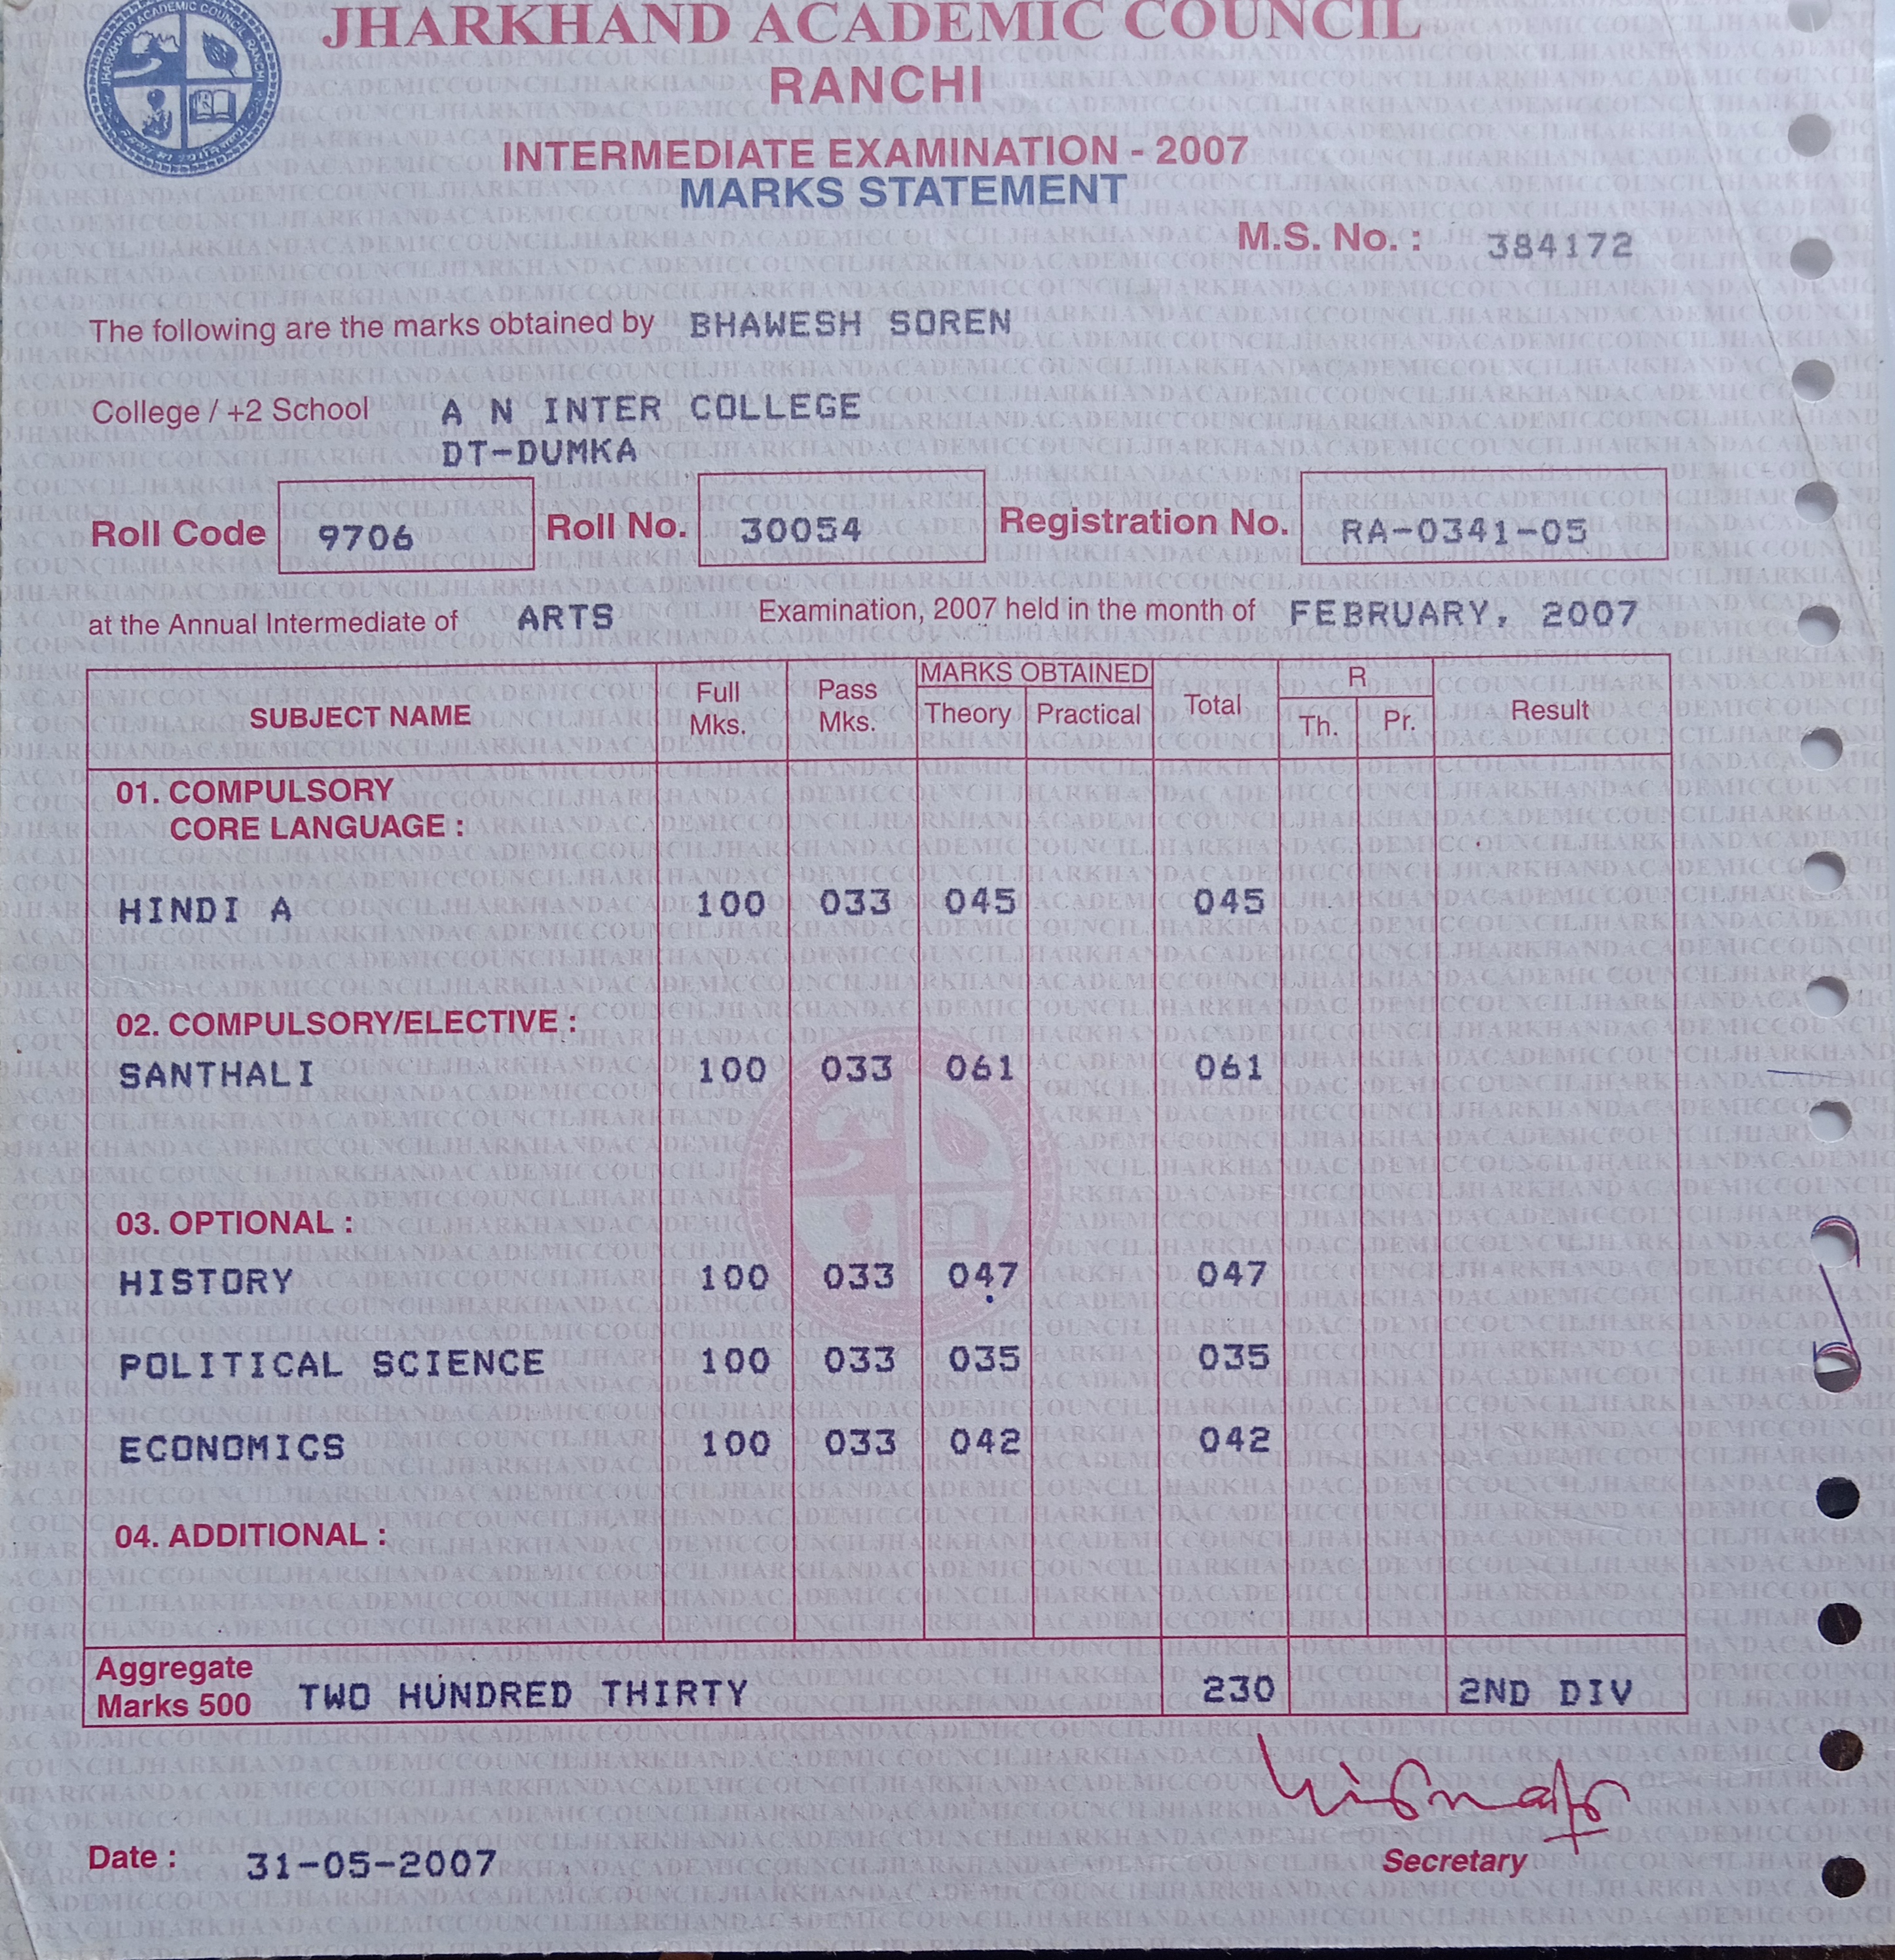 JHARKHAND ACADEMIC COUNCIL
RANCHI
INTERMEDIATE EXAMINATION - 2007
MARKS STATEMENT
M.S. No. : 384172
The following are the marks obtained by BHAWESH SOREN
College / +2 School A N INTER COLLEGE
DT-DUMKA
Roll Code 9706 Roll No. 30054 Registration No. RA-0341-05
at the Annual Intermediate of ARTS Examination, 2007 held in the month of FEBRUARY, 2007
SUBJECT NAME Full Mks. Pass Mks. MARKS OBTAINED Theory Practical Total R Th. Pr. Result
01. COMPULSORY
CORE LANGUAGE :
HINDI A 100 033 045 045
02. COMPULSORY/ELECTIVE :
SANTHALI 100 033 061 061
03. OPTIONAL :
HISTORY 100 033 047 047
POLITICAL SCIENCE 100 033 035 035
ECONOMICS 100 033 042 042
04. ADDITIONAL :
Aggregate
Marks 500 TWO HUNDRED THIRTY 230 2ND DIV
Date : 31-05-2007
Secretary